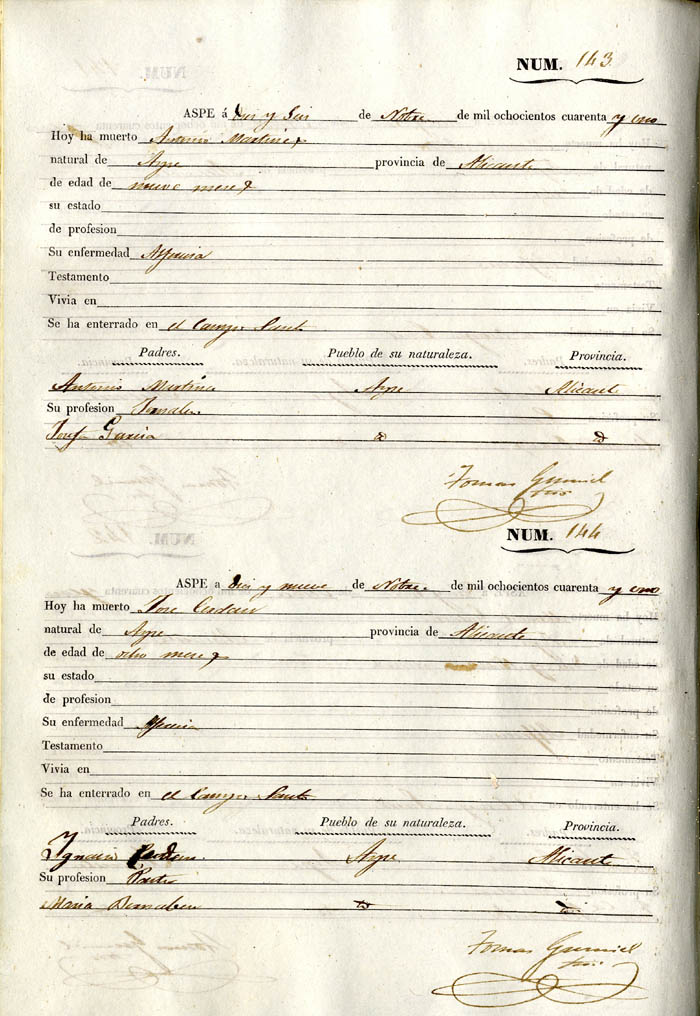 NUM. 143.
ASPE á Diez y Seis de Nobre de mil ochocientos cuarenta y uno
Hoy ha muerto Martinez
natural de Aspe provincia de Alicante
de edad de nueve meses
su estado
de profesion
Su enfermedad
Testamento
Vivia en
Se ha enterrado en el Campo Santo
Padres. Pueblo de su naturaleza. Provincia.
Antonio Martinez Aspe Alicante
Su profesion Jornalero
Josefa Garcia
Tomas Gumiel
NUM. 144
ASPE a Diez y nueve de Nobre de mil ochocientos cuarenta y uno
Hoy ha muerto Jose Cerdan
natural de Aspe provincia de Alicante
de edad de ocho meses
su estado
de profesion
Su enfermedad
Testamento
Vivia en
Se ha enterrado en el Campo Santo
Padres. Pueblo de su naturaleza. Provincia.
Ignacio Aspe Alicante
Su profesion
Maria Bernabeu
Tomas Gumiel